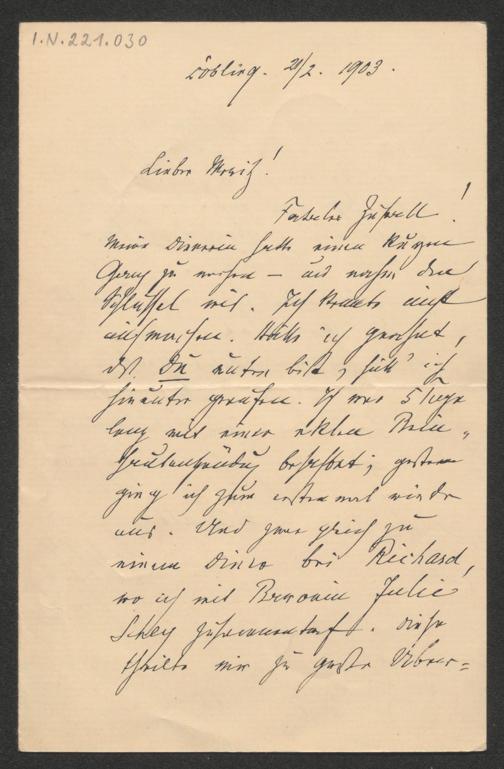 I.N.221.030
Döbling. 21/2. 1903.
Lieber Moriz!
Fataler Zufall!
Meine Dienerin hatte einen kurzen
Gang zu machen – und nahm den
Schlüssel mit. Ich konnte nicht
aufmachen. Hätte ich geahnt,
dß Du unten bist, hätt' ich
hinunter gerufen. Ich war 5 Tage
lang mit einer
behaftet; gestern
ging ich zum ersten mal wieder
aus. Und zwar gleich zu
einem Diner bei Richard,
wo ich mit Baronin Julie
Schey zusammentraf. Diese
theilte mir zu größter Über=